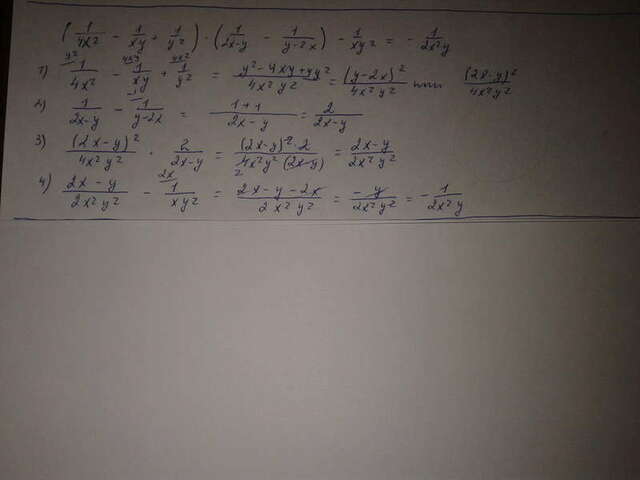 (1/4x² - 1/xy + 1/y²) · (1/2x-y - 1/y-2x) - 1/xy² = - 1/2x²y
1) 1/4x² - 1/xy + 1/y² = y² - 4xy + 4x²/4x²y² = (y-2x)²/4x²y² или (2x-y)²/4x²y²
2) 1/2x-y - 1/y-2x = 1+1/2x-y = 2/2x-y
3) (2x-y)²/4x²y² · 2/2x-y = (2x-y)² · 2/4x²y²(2x-y) = 2x-y/2x²y²
4) 2x-y/2x²y² - 1/xy² = 2x-y-2x/2x²y² = -y/2x²y² = - 1/2x²y